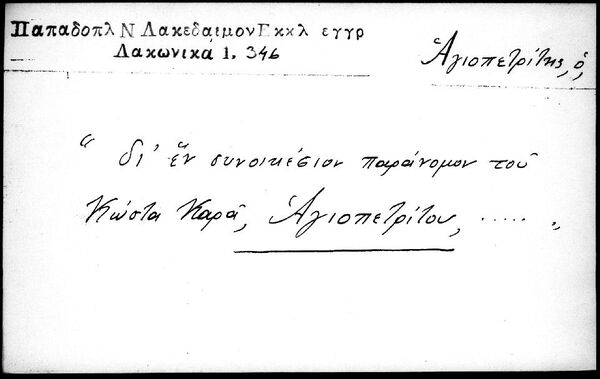 Παπαδοπλ Ν Λακεδαιμον Εκκλ εγγρ
Λακωνικα 1. 346
Ἁγιοπετρίτης, ὁ,
“ δι’ ἕν συνοικέσιον παράνομον τοῦ
Κώστα Καρᾶ, Ἁγιοπετρίτου, ..... „